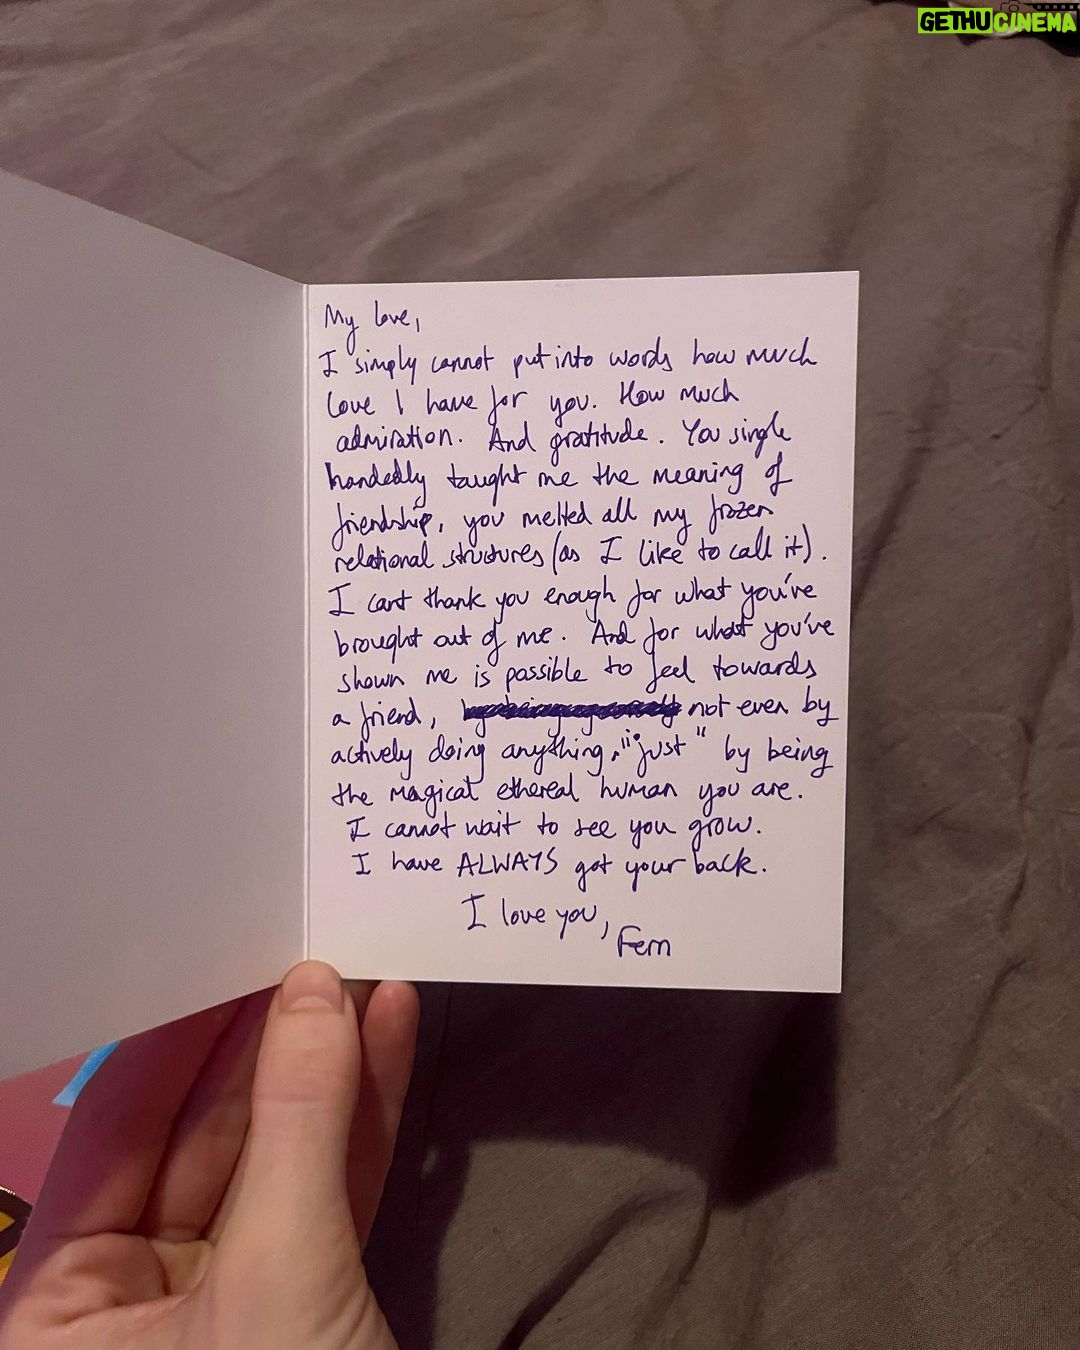 GETHUCINEMA
My love,
I simply cannot put into words how much
love I have for you. How much
admiration. And gratitude. You single
handedly taught me the meaning of
friendship, you melted all my frozen
relational structures (as I like to call it).
I cant thank you enough for what you've
brought out of me. And for what you've
shown me is possible to feel towards
a friend, not even by
actively doing anything, "just" by being
the magical ethereal human you are.
I cannot wait to see you grow.
I have ALWAYS got your back.
I love you,
Fern